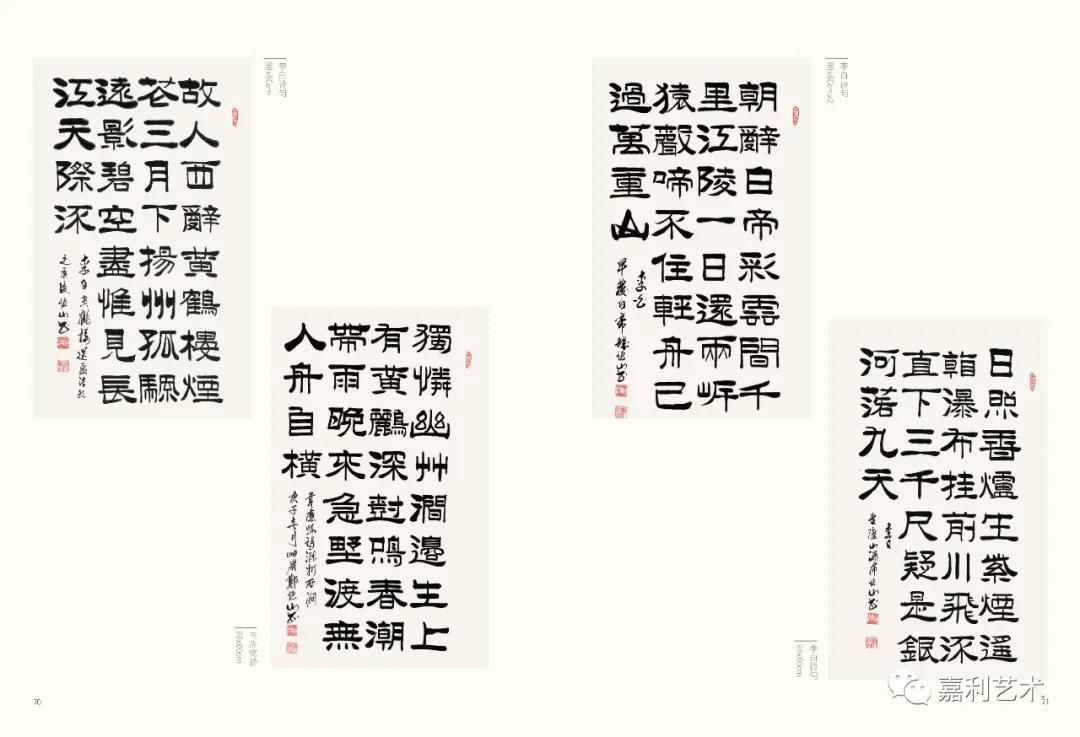 李白诗句
98x60cm
故人西辭黃鶴樓煙
花三月下揚州孤颿
遠影碧空盡惟見長
江天際流
李白黃鶴樓送孟浩然
之廣陵恆山書
獨憐幽艸澗邊生上
有黃鸝深尌鳴春潮
帶雨晚來急野渡無
人舟自橫
韋應物詩滁州西澗
庚子春月 鄭恆山書
韦应物诗
98x60cm
70
李白诗句
98x60cmx2
朝辭白帝彩雲間千
里江陵一日還兩岸
猿聲啼不住輕舟已
過萬重山
李白
早發白帝城恆山書
日照香爐生紫煙遥
看瀑布挂前川飛流
直下三千尺疑是銀
河落九天
李白
望廬山瀑布恆山書
李白诗句
98x60cm
嘉利艺术
71